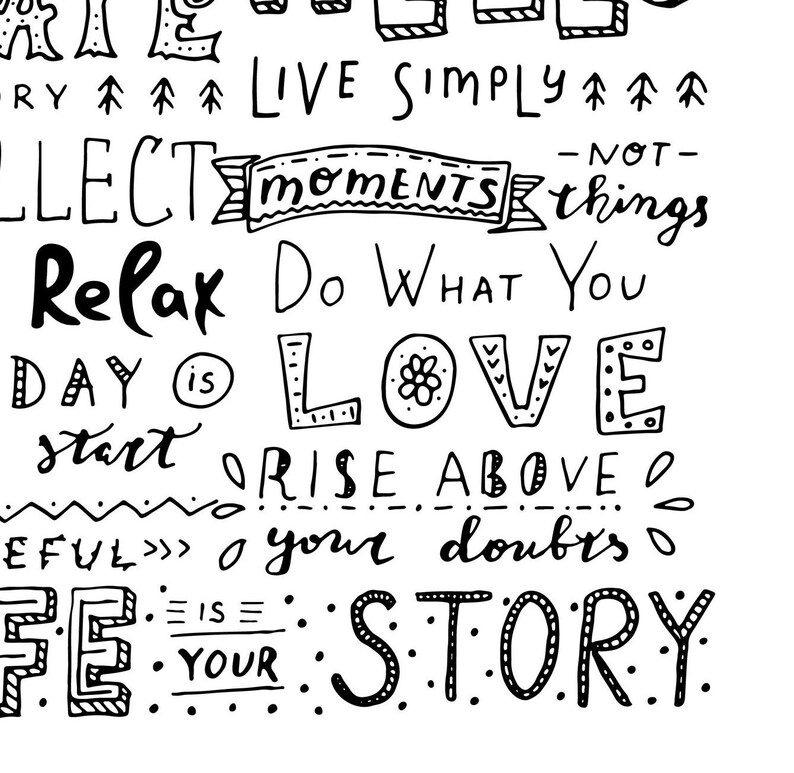 ORY LIVE SIMPLY
LLECT MOMENTS -NOT- things
Relax DO WHAT YOU
DAY is LOVE
start RISE ABOVE
EFUL>>> your doubts
FE IS YOUR STORY